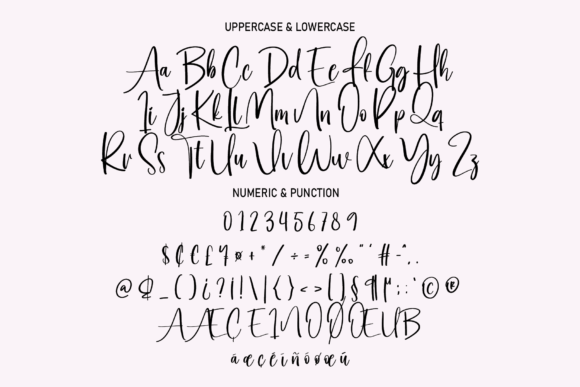 UPPERCASE & LOWERCASE
Aa Bb Cc Dd Ee Ff Gg Hh
Ii Jj Kk Ll Mm Nn Oo Pp Qq
Rr Ss Tt Uu Vv Ww Xx Yy Zz
NUMERIC & PUNCTION
0 1 2 3 4 5 6 7 8 9
$ ₵ € £ ¥ ¤ + * / ÷ = % ‰ " ' # - ^ . ,
@ _ ( ) ¿ ? ¡ ! \ | { } < > [ ] § ¶ : ; ' © ®
A Æ Ç E I N O Ø Œ U B
ä æ ç ê í ñ ó ø œ ú